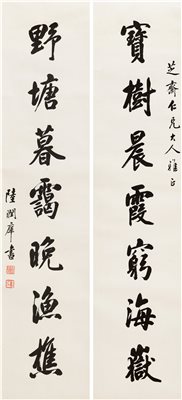 芝齋仁兄大人雅正
寶樹晨霞窮海嶽
野塘暮靄晚漁樵
陸潤庠書